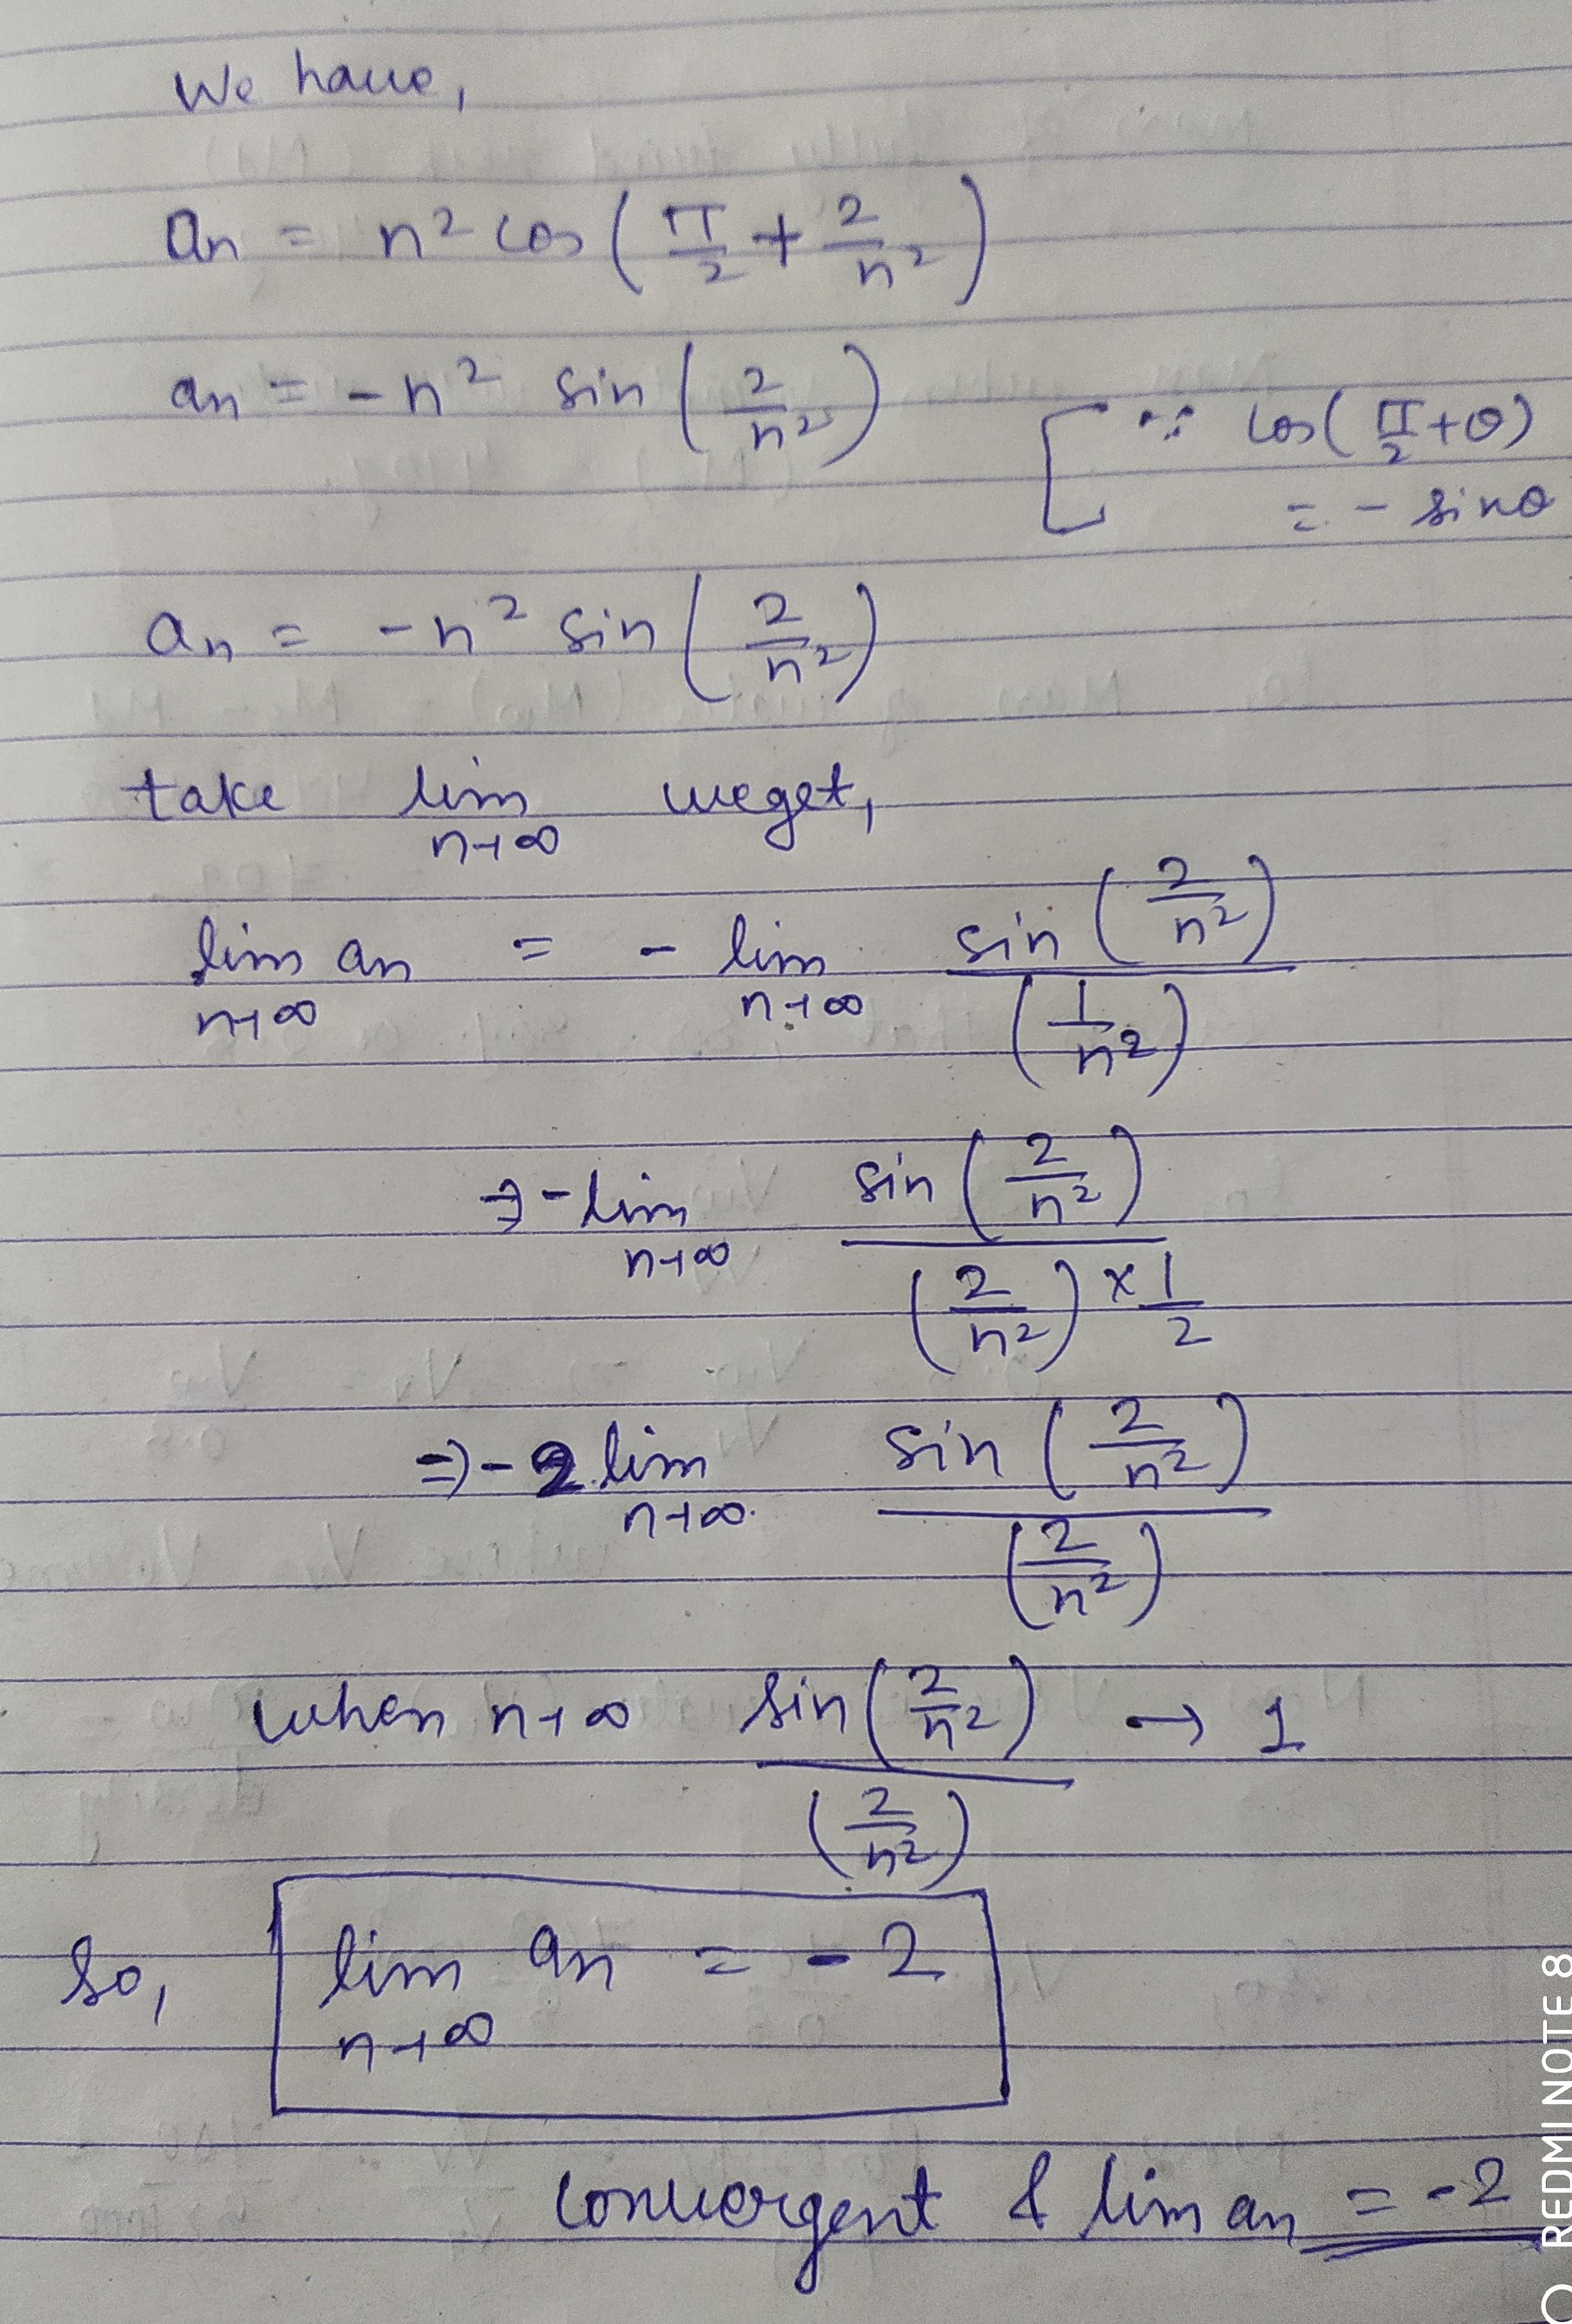 We have,
an = n² cos (π/2 + 2/n²)
an = -n² sin (2/n²) [∵ cos(π/2+θ)
= - sinθ
an = -n² sin (2/n²)
take lim n→∞ weget,
lim n→∞ an = - lim n→∞ sin (2/n²) / (1/n²)
⇒ - lim n→∞ sin (2/n²) / (2/n²) × 1/2
⇒ - 2 lim n→∞ sin (2/n²) / (2/n²)
when n→∞ sin(2/n²) / (2/n²) → 1
So, lim n→∞ an = - 2
convergent & lim an = -2
REDMI NOTE 8